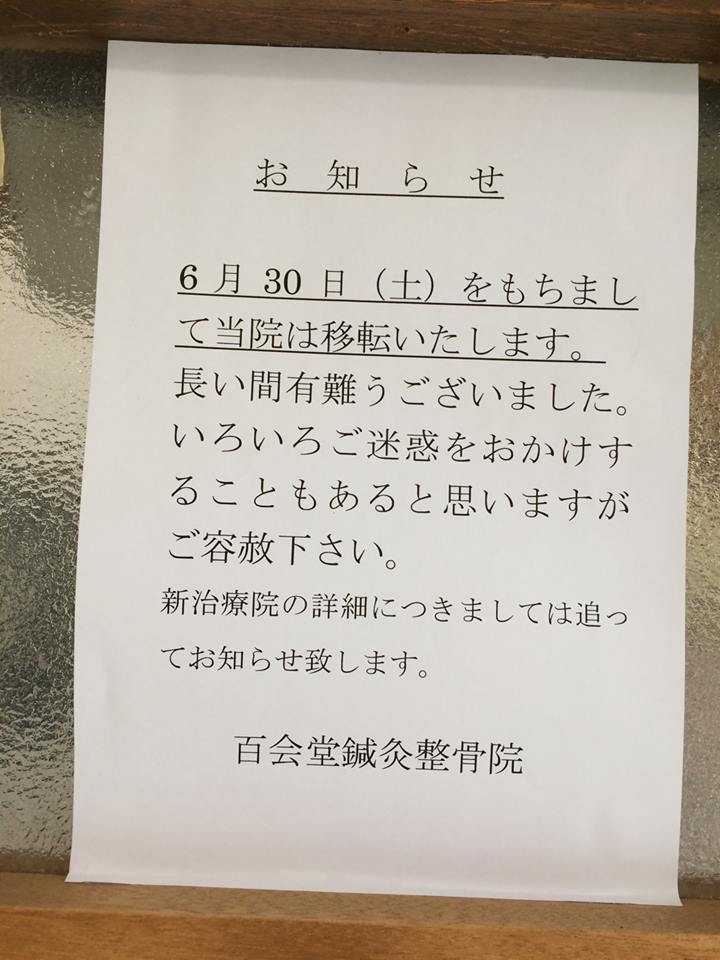 お知らせ
6月30日（土）をもちまし
て当院は移転いたします。
長い間有難うございました。
いろいろご迷惑をおかけす
ることもあると思いますが
ご容赦下さい。
新治療院の詳細につきましては追っ
てお知らせ致します。
百会堂鍼灸整骨院